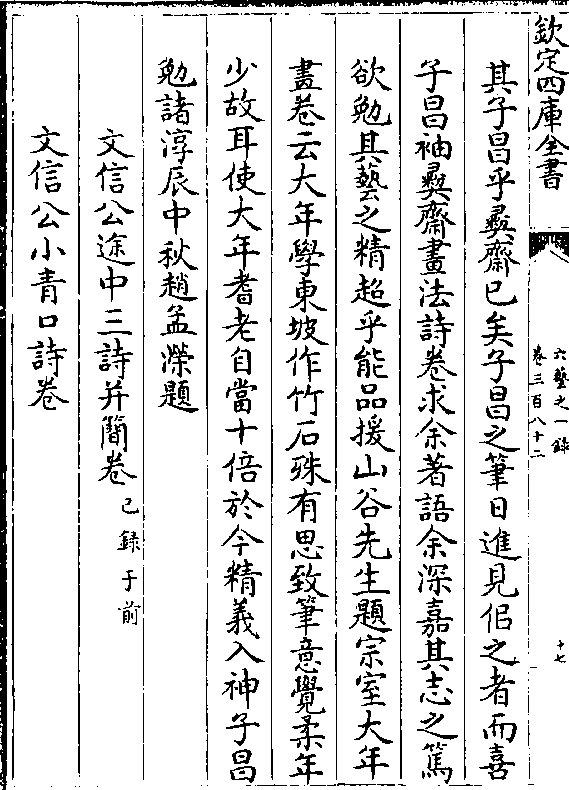 欽定四庫全書
六藝之一錄
卷三百八十二
十七
其子昌乎彞齋已矣子昌之筆日進見侣之者而喜
子昌袖彞齋畫法詩卷求余著語余深嘉其志之篤
欲勉其藝之精超乎能品援山谷先生題宗室大年
畫卷云大年學東坡作竹石殊有思致筆意覺柔年
少故耳使大年耆老自當十倍於今精義入神子昌
勉諸淳辰中秋趙孟濚題
文信公途中三詩并簡卷已錄于前
文信公小青口詩卷